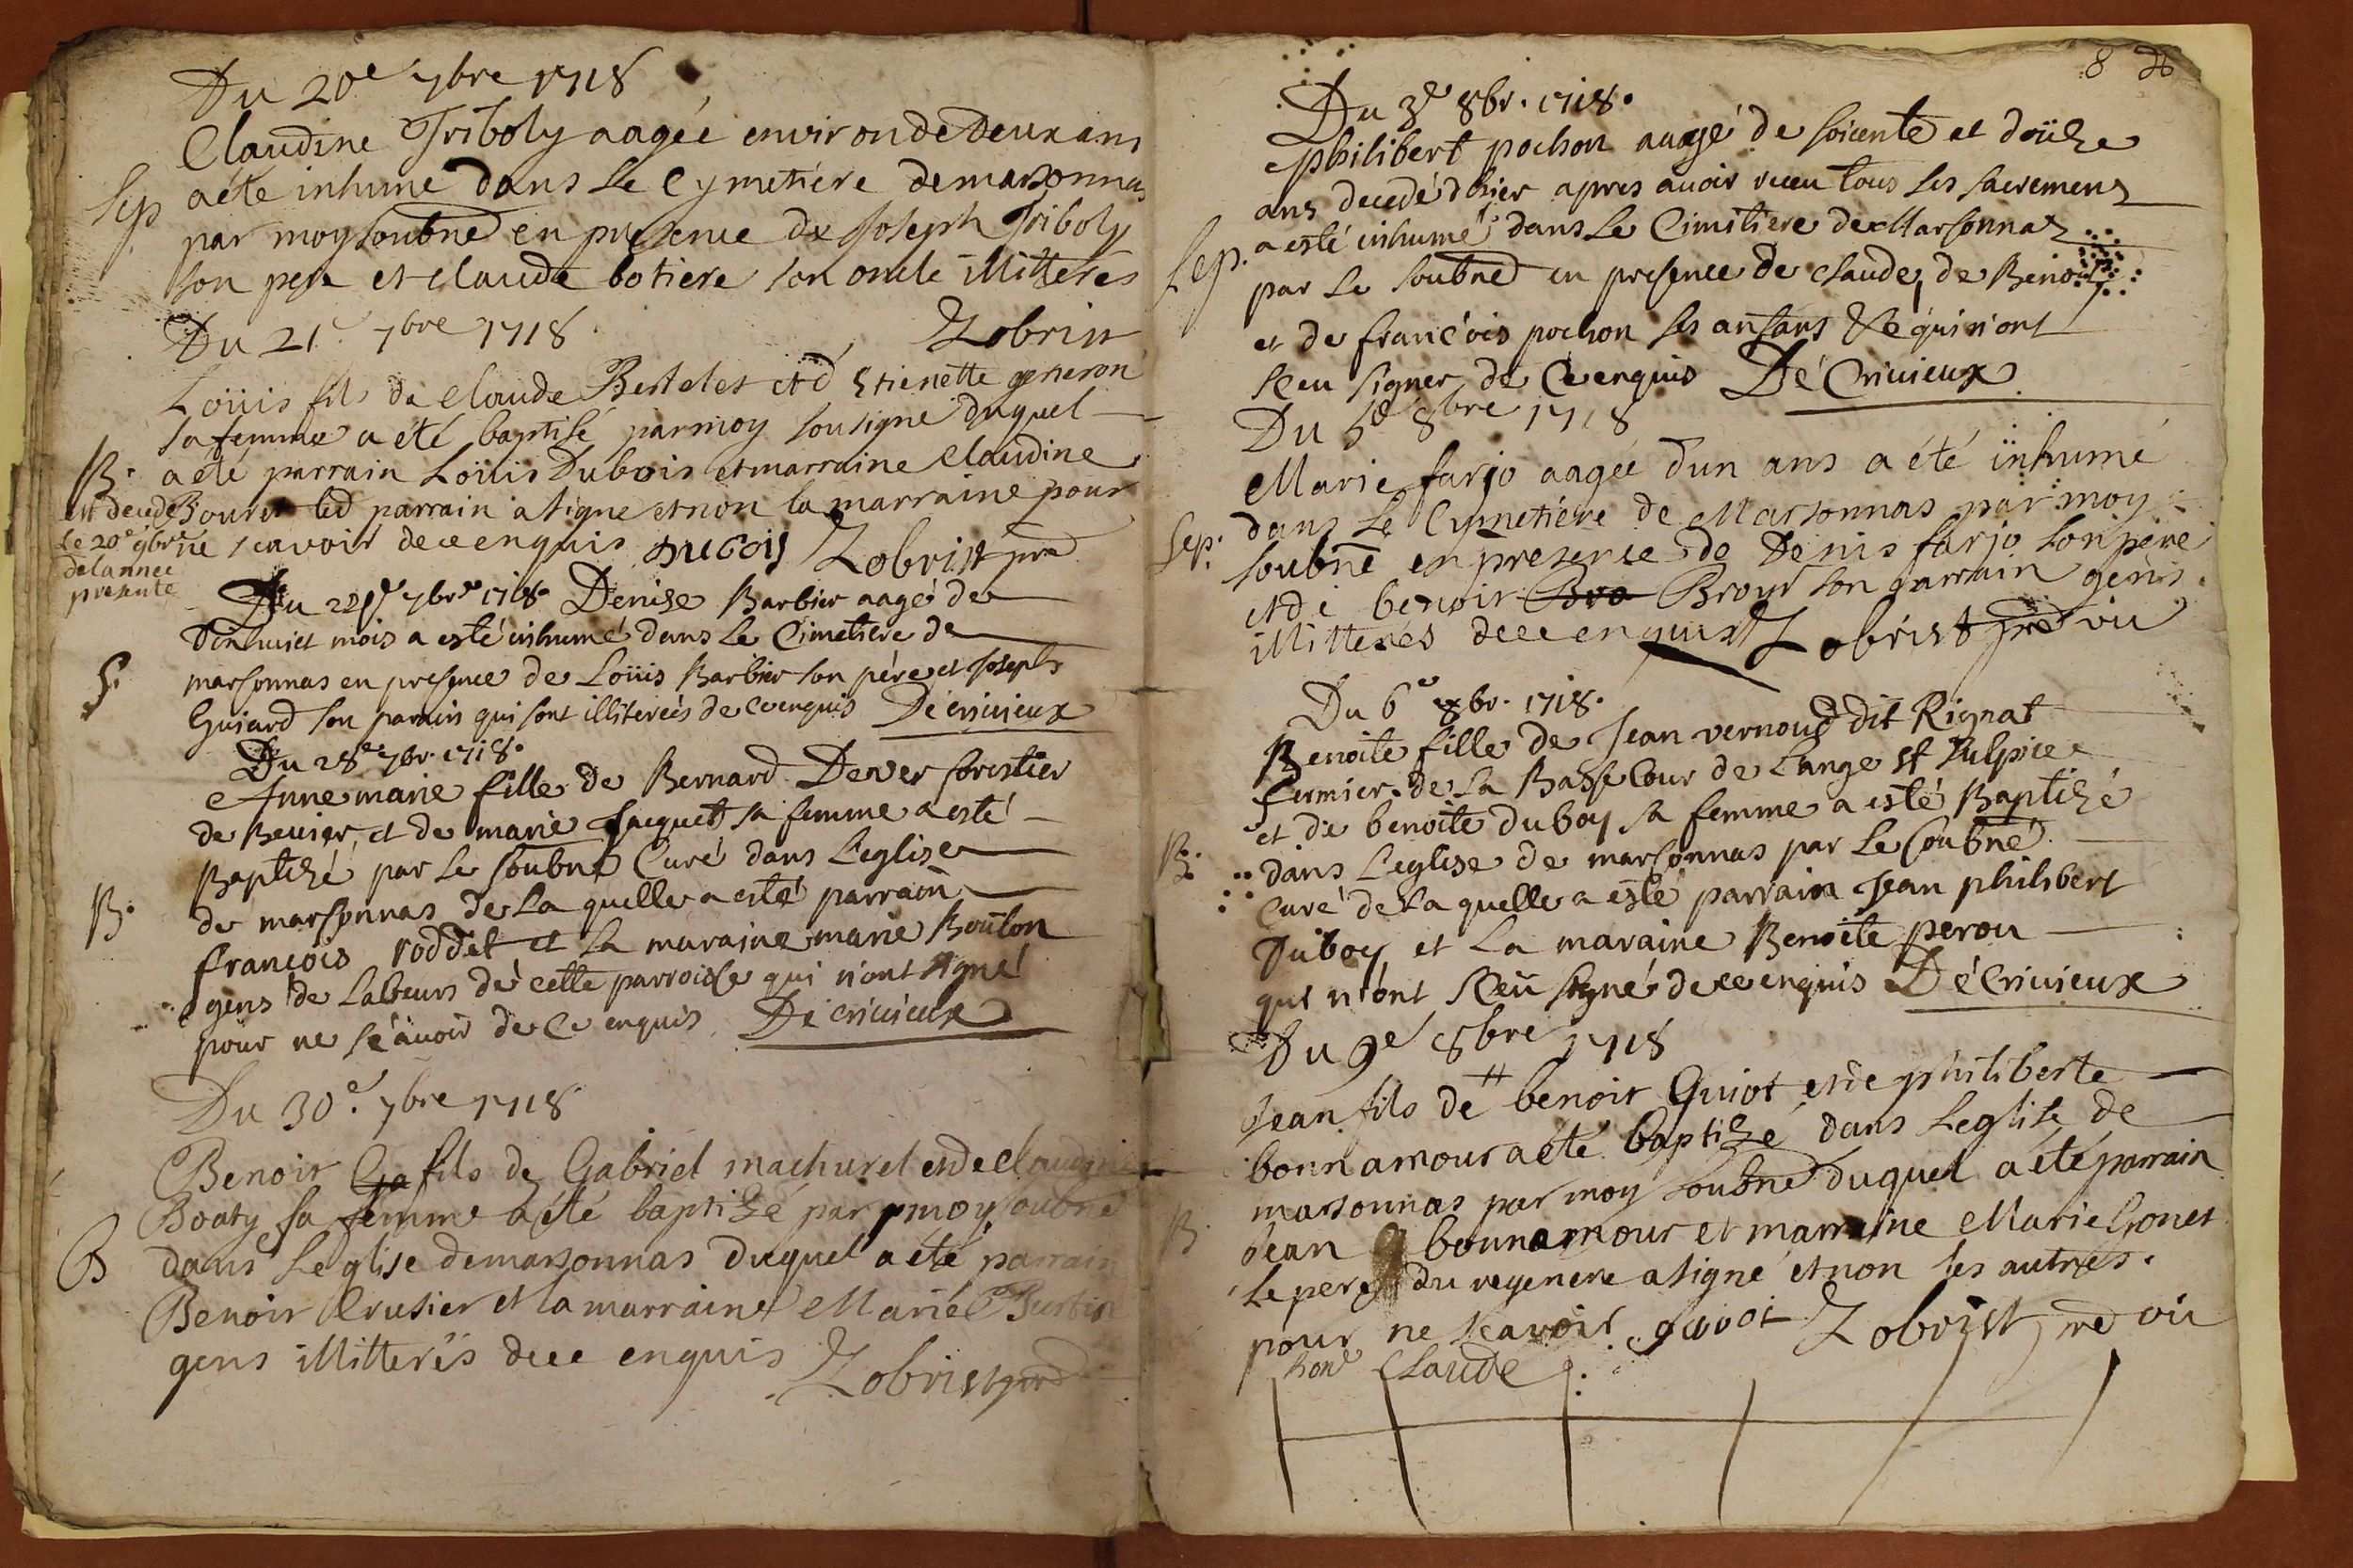 Du 20e 7bre 1718
Claudine Triboly aagée environ de Deux ans
Sep a éte inhume dans le Cymetiére de marsonnas
par moy soubné en presence de Joseph Triboly
son pere et claude botiere son oncle illitterés
Zobrist
Du 21e 7bre 1718
Loüis fils de claude Bertelet et d'Etienette generon
sa femme a été baptisé par moy sousigné duquel
B. a été parrain Loüis Dubois et marraine Claudine
led parrain a signé et non la marraine pour
ne scavoir de ce enquis DUBOIS Zobrist
est decedé
Le 20e 9bre
de lannee
presente
Du 7bre 1718. Denise Barbier aagé de
dixhuict mois a esté inhumé dans Le Cimetiere de
S. marsonnas en presence de Loüis Barbier son pére et Joseph
Guiard son parain qui sont illitereés de ce enquis De Crivieux
Du 28e 7br. 1718.
Anne marie fille de Bernard Dever forestier
de Bevier, et de marie Jacquet sa femme a esté
Baptizé par Le soubné Curé dans L'eglise
B. de marsonnas de La quelle a esté parrain
francois roddet et La maraine marie Bouton
gens de Labeurs de cette parroisse qui n'ont signé
pour ne sçavoir de Ce enquis De Crivieux
Du 30e. 7bre 1718
Benoit Ga fils de Gabriel machuret et de
Boaty sa femme a été baptizé par moy soubné
B dans Leglise de marsonnas duquel a été parrain
Benoit Crusier et la marraine Marie
gens illitterés de ce enquis Zobrist
8
Du 3e 8br. 1718.
philibert pochon aagé de soicente et doüze
ans decedé dhier apres avoir receu tous les sacremens
Sep. a esté inhumé dans Le Cimitiere de Marsonnaz
par Le soubné en presence de claude, de Benoit
et de francois pochon ses anfans qui n'ont
sceu signer de Ce enquis De Crivieux
Du 5e 8bre 1718
Marie farjo aagée d'un ans a été inhumé
Sep. dans Le Cymetiére de Marsonnas par moy
soubné en presence de Denis farjo son pere
et de benoit Bro Broud son parrain gens
illitterés de ce enquis Zobrist
Du 6e 8br. 1718.
Benoite fille de Jean vernoud dit Rignat
fermier de La Basse Cour de Lange st Sulpice
et de benoite duboy sa femme a esté Baptizé
B. dans L'eglise de marsonnas par Le soubné
Curé de La quelle a esté parrain Jean philibert
Duboy et La maraine Benoite perou
qui n'ont sceu signé de ce enquis De Crivieux
Du 9e 8bre 1718
Jean fils de benoit Guiot et de philiberte
bonnamour a été baptizé dans Leglise de
marsonnas par moy soubné duquel a été parrain
B Jean bonnamour et marraine Marie
Le pere du regeneré a signé et non les autres.
pour ne scavoir. guiot Zobrist
hone Claude